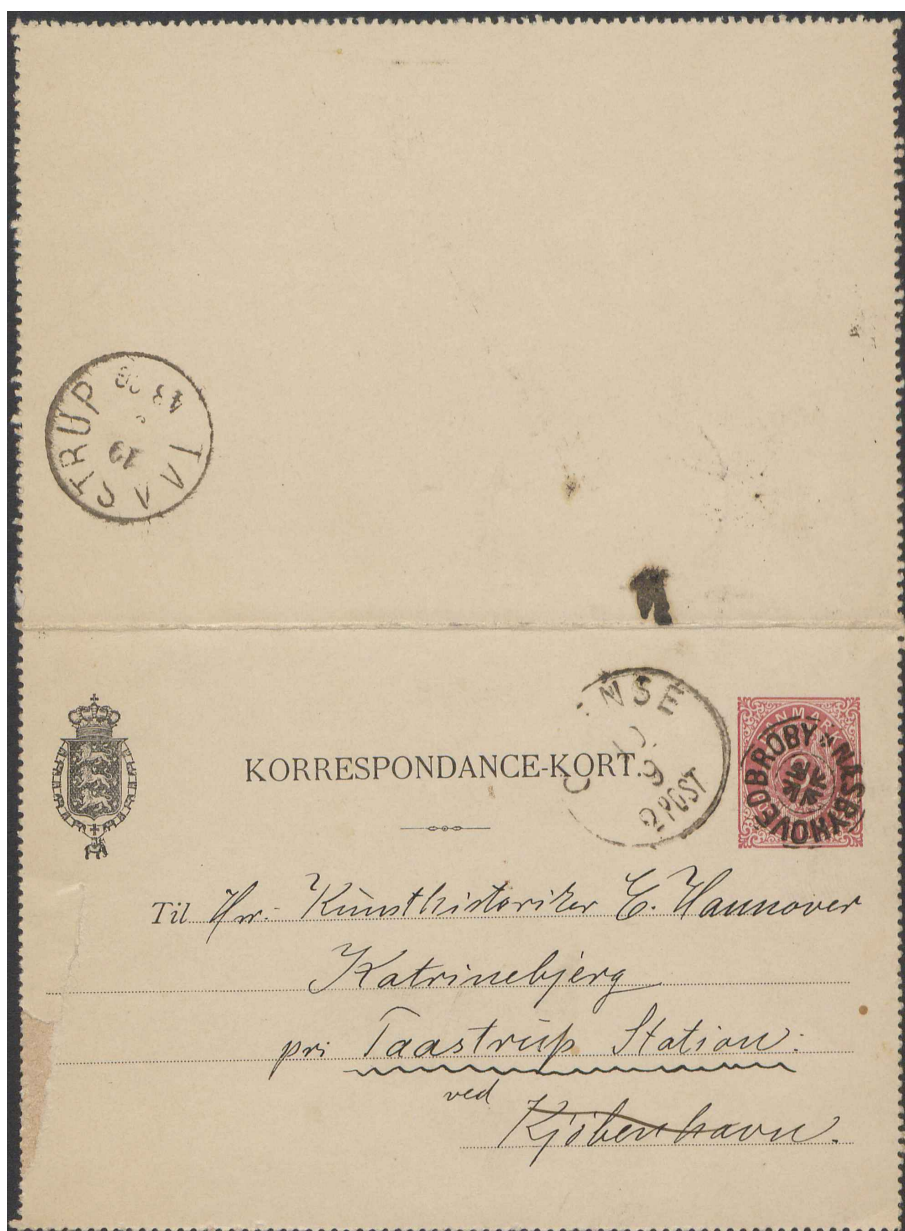 TAASTRUP
19
KORRESPONDANCE-KORT.
2 POST
DANMARK
NÆSBYHOVEDBROBY
Til Hrr. Kunsthistoriker E. Hannover
Katrinebjerg
pri Taastrup Station.
ved
Kjøbenhavn.